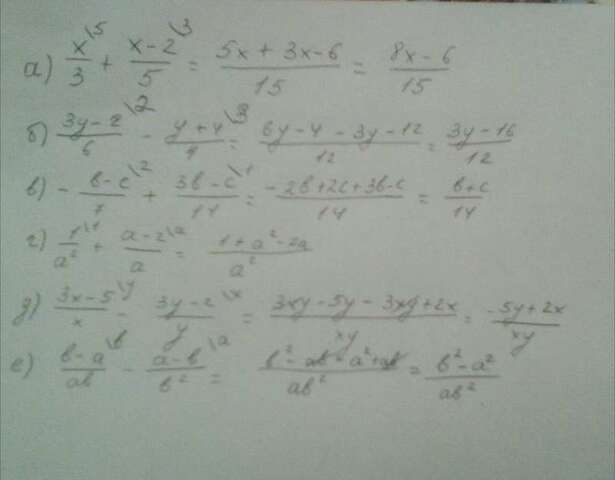 а) x\5/3 + x-2\3/5 = 5x + 3x-6/15 = 8x-6/15
б) 3y-2\2/6 - y+4\3/4 = 6y-4-3y-12/12 = 3y-16/12
в) - b-c\2/7 + 3b-c\1/14 = -2b+2c+3b-c/14 = b+c/14
г) 1\1/a² + a-2\a/a = 1+a²-2a/a²
д) 3x-5\y/x - 3y-2\x/y = 3xy-5y-3xy+2x/xy = -5y+2x/xy
е) b-a\b/ab - a-b\a/b² = b²-ab-a²+ab/ab² = b²-a²/ab²